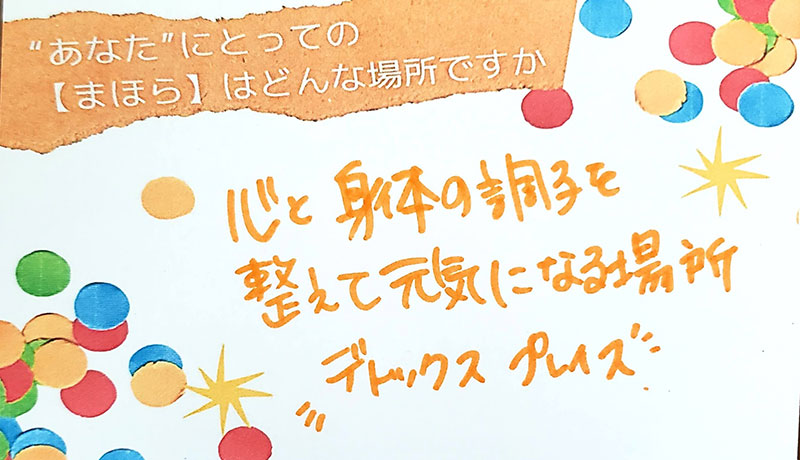 “あなた”にとっての
【まほら】はどんな場所ですか
心と 身体の調子を
整えて元気になる場所
デトックス プレイズ